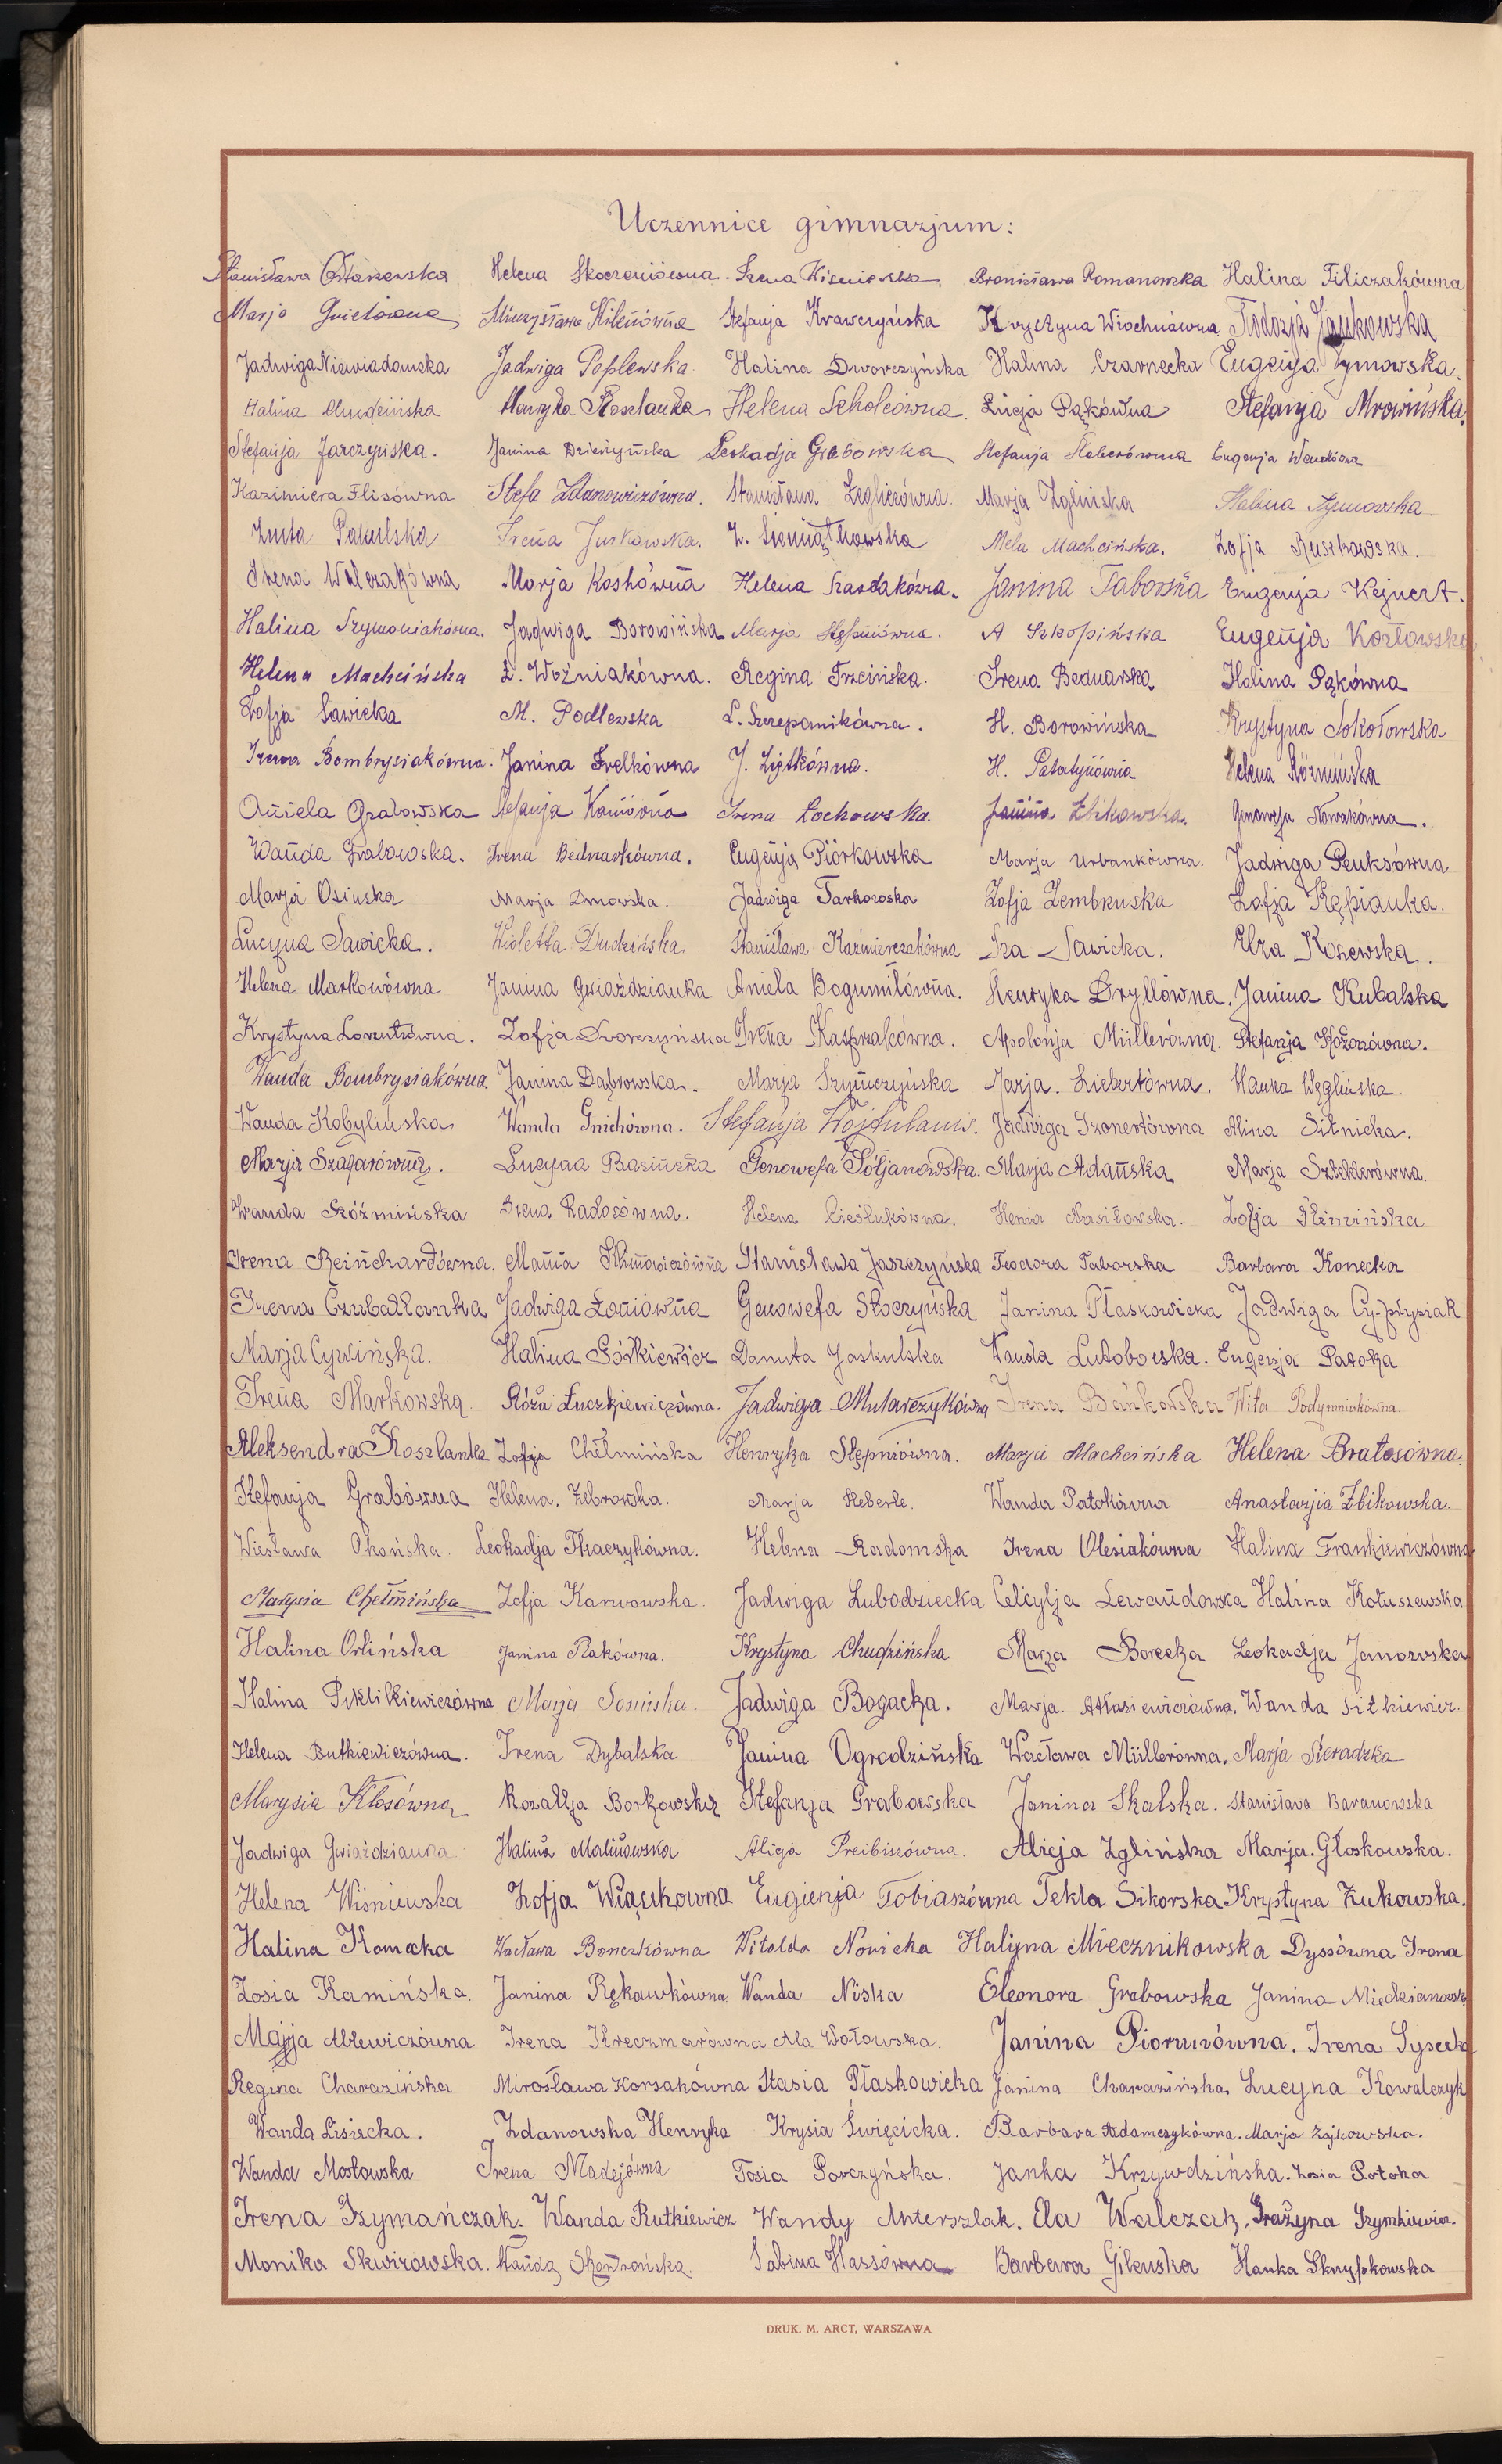 Uczennice gimnazjum:
Stanisława Ostanewska Helena Skoczeniówna. Irena Wiśniewska Bronisława Romanowska Halina Filiczakówna
Marja Mieczysława Kileńówna Stefanja Krawczyńska Krystyna Wiochnówna Teodozja Jankowska
Jadwiga Niewiadomska Jadwiga Poplewska Halina Dworczyńska Halina Czarnecka Eugenja Tymowska.
Halina Chudzińska Maryla Koszlanka Helena Scholcówna Łucja Pąkówna Stefanja Mrowińska.
Stefanja Jarczyńska. Janina Dzierżyńska Leokadja Grabowska Stefanja Heberówna Eugenja
Kazimiera Flisówna Stefa Zdanowiczówna. Stanisława Zeglicówna. Marja Zglińska Halina Tymowska.
Zuta Pakulska Irena Jurkowska. Z. Sieniątkowska Mela Machcińska. Zofja Ruszkowska.
Irena Walczakówna Marja Koskówna Helena Szasdakówna. Janina Taborska Eugenja Kejnert.
Halina Szymoniakówna. Jadwiga Borowińska Marja Stępniówna. A Szkopińska Eugenja Kozłowska
Helena Machcińska Z. Woźniakówna. Regina Trzcińska. Irena Bednarska Halina Pąkówna
Zofja Sawicka M. Podlewska L. Szczepanikówna. H. Borowińska Krystyna Sokołowska
Irena Bombrysiakówna. Janina Frelkówna J. Ziętkówna. H. Patatynówna Helena Różnińska
Aniela Grabowska Stefanja Kaniówna Irena Łochowska. Janina Zbikowska. Genowefa Nowakówna.
Wanda Grabowska. Irena Bednarkówna. Eugenja Piórkowska Marja Urbankówna. Jadwiga Peuksówna
Marja Osinska Marja Dmowska. Jadwiga Tarkowska Zofja Zembruska Zofja Kępianka.
Lucyna Sawicka. Wioletta Dudzińska. Stanisława Kaźmierczakówna Iza Sawicka. Elza Kosewska.
Helena Markowówna Janina Gwiaździanka Aniela Bogumiłówna. Henryka Dryllówna. Janina Kubalska
Krystyna Lorentzówna. Zofja Dworczyńska Irena Kasprzakówna. Apolonja Müllerówna. Stefanja Kożonówna.
Wanda Bombrysiakówna. Janina Dąbrowska. Marja Szymczyńska Marja. Liebertówna. Hanka Węglińska.
Wanda Kobylińska Wanda Gnichówna. Stefanja Wojtulanis. Jadwiga Szonertówna Alina Sitnicka.
Marja Szafarówna. Lucyna Basińska Genowefa Sołjanowska. Marja Adańska Marja Szteklerówna.
Wanda Koźmińska Irena Radosówna. Helena Cieślukówna. Henia Nasiłowska. Zofja Klimińska
Irena Reinchardówna. Mania Klimowiczówna Stanisława Jaszczyńska Teodora Taborska Barbara Konecka
Irena Czubatlanka Jadwiga Łoniówna Genowefa Słoczyńska Janina Płaskowicka Jadwiga Cyprysiak
Marja Cywińska. Halina Górkiewicz Danuta Jaskulska Wanda Lutoborska. Eugenja Patoka
Irena Markowska. Róża Łuczkiewiczówna. Jadwiga Mularzykówna Irena Bańkowska Wita Podymniakówna.
Aleksendra Koszlanka Zofja Chełmińska Henryka Stępniówna. Marja Machcińska Helena Bratosówna.
Stefanja Grabówna Helena. Żebrowska. Marja Heberle. Wanda Patokówna Anastazjia Zbikowska.
Wiesława Okońska. Leokadja Tkaczykówna. Helena Radomska Irena Olesiakówna Halina Frankiewiczówna
Marysia Chełmińska Zofja Karwowska. Jadwiga Lubodziecka Celcylja Lewandowska Halina Kotuszewska
Halina Orlińska Janina Rakówna. Krystyna Chudzińska Marja Borecka Leokadja Janowska
Halina Piklikiewiczówna Marja Sosińska. Jadwiga Bogacka. Marja. Atłasiewiczówna. Wanda Sitkiewicz.
Helena Butkiewiczówna. Irena Dybalska Janina Ogrodzińska Wacława Müllerówna. Marja Sieradzka
Marysia Kłosówna Rozalja Borkowska Stefanja Grabowska Janina Skalska. Stanisława Baranowska
Jadwiga Gwiaździanna. Halina Malinowska Alicja Preibiszówna. Alicja Zglińska Marja. Głoskowska.
Helena Wiśniewska Zofja Wiącikówna Eugienja Tobiaszówna Tekla Sikorska Krystyna Żukowska.
Halina Konecka Wacława Bonczkówna Witolda Nowicka Halina Miecznikowska Dyssówna Irena
Zosia Kamińska. Janina Rękawkówna. Wanda Niska Eleonora Grabowska Janina Miedzianowska
Marja Ablewiczówna Irena Kreczmarówna Ala Wołowska. Janina Piorunówna. Irena Sysek
Regina Charazińska Mirosława Korsakówna Stasia Płaskowicka Janina Charazińska Lucyna Kowalczyk
Wanda Lisiecka. Zdanowska Henryka Krysia Święcicka. Barbara Adamczykówna. Marja Zajkowska.
Wanda Mostowska Irena Madejówna Tosia Porczyńska. Janka Krzywdzińska. Zosia Potoka
Irena Szymańczak. Wanda Rutkiewicz Wandy Anterszlak. Ela Walczak. Grażyna Szymkiewicz.
Monika Skwirowska. Wanda Skowrońska. Sabina Hassówna Barbara Gilewska Hanka Skrypkowska
DRUK. M. ARCT, WARSZAWA